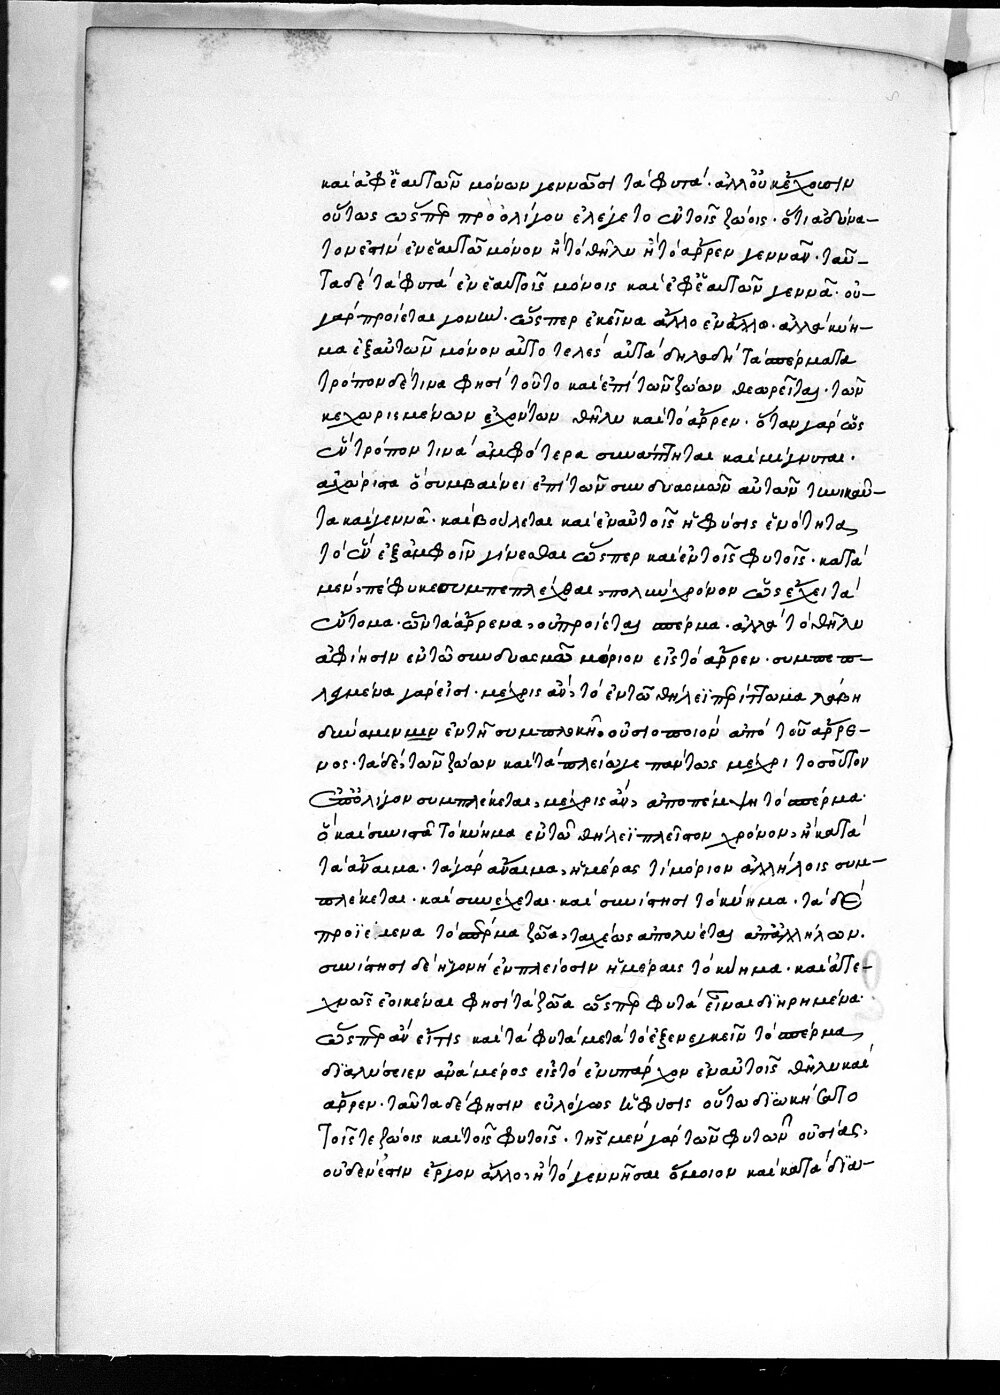 καὶ ἀφ' ἑαυτῶν μόνων γεννῶσι τὰ φυτά· ἀλλ' οὐκ ἔχουσιν
οὕτως ὥσπερ πρὸ ὀλίγου ἐλέγετο ἐν τοῖς ζώοις· ὅτι ἀδύνα-
τόν ἐστιν ἐν ἑαυτῶ μόνον ἢ τὸ θῆλυ ἢ τὸ ἄρρεν γεννᾶν· ταῦ-
τα δὲ τὰ φυτὰ ἐν ἑαυτοῖς μόνοις καὶ ἐφ' ἑαυτῶν γεννᾶ· οὐ-
γὰρ προΐεται γονὴν· ὥσπερ ἐκεῖνα ἄλλο ἐν ἄλλω· ἀλλὰ κύη-
μα ἐξ αὐτῶν μόνον αὐτοτελὲς αὐτὰ δηλαδὴ τὰ σπέρματα
τρόπον δέ τινα φησὶ τοῦτο καὶ ἐπὶ τῶν ζώων θεωρεῖται· τῶν
κεχωρισμένων ἐχόντων θῆλυ καὶ τὸ ἄρρεν· ὅταν γὰρ ὡς
ἓν τρόπον τινὰ ἀμφότερα συνάπτηται καὶ μίγνυται·
ἀχώριστα ὃ συμβαίνει ἐπὶ τῶν συνδυασμῶν αὐτῶν τηνικαῦ-
τα καὶ γεννᾶ· καὶ βούλεται καὶ ἐν αὐτοῖς ἡ φύσις ἑνότητα
τὸ ἓν ἐξ ἀμφοῖν γίνεσθαι ὥσπερ καὶ ἐν τοῖς φυτοῖς· κατὰ
μὲν, πέφυκε συμπεπλέχθαι, πολὺν χρόνον ὡς ἔχει τὰ
ἔντομα· ὧν τὰ ἄρρενα, οὐ προΐεται σπέρμα· ἀλλὰ τὸ θῆλυ
ἀφίησιν ἐν τῶ συνδυασμῶ μόριον εἰς τὸ ἄρρεν· συμπεπ-
λεγμένα γάρ εἰσι· μέχρις ἂν, τὸ ἐν τῶ θήλεϊ περίττωμα λάβη
δύναμιν ἐν τῆ συμπλοκῆ, οὐσιοποιὸν ἀπὸ τοῦ ἄρρε-
νος· τὰ δὲ, τῶν ζώων καὶ τὰ πλείω γε πάντως μέχρι τοσοῦτον
ὀλίγον συμπλέκεται, μέχρις ἂν, ἀποπέμψη τὸ σπέρμα·
ὃ καὶ συνιστᾶ τὸ κύημα ἐν τῶ θήλεϊ πλεῖστον χρόνον, ἢ κατὰ
τὰ ἄναιμα· τὰ γὰρ ἄναιμα, ἡμέρας τι μόριον ἀλλήλοις συμ-
πλέκεται· καὶ συνέχεται· καὶ συνίστησι τὸ κύημα· τὰ δὲ
προϊέμενα τὸ σπέρμα ζῶα, ταχέως ἀπολύεται ἀπ' ἀλλήλων.
συνίστησι δὲ ἡ γονὴ ἐν πλείοσιν ἡμέραις τὸ κύημα· καὶ ἀτε-
χνῶς ἐοικέναι φησὶ τὰ ζῶα ὥσπερ φυτὰ εἶναι διηρημένα·
ὥσπερ ἂν εἴ τις καὶ τὰ φυτὰ μετὰ τὸ ἐξενεγκεῖν τὸ σπέρμα,
διαλύσειεν ἀνὰ μέρος εἰς τὸ ἐνυπάρχον ἐν αὐτοῖς θῆλυ καὶ
ἄρρεν· ταῦτα δέ φησιν εὐλόγως ἡ φύσις οὕτω διωκήσατο
τοῖς τε ζώοις καὶ τοῖς φυτοῖς· τῆς μὲν γὰρ τῶν φυτῶν οὐσίας,
οὐδέν ἐστιν ἔργον ἄλλο, ἢ τὸ γεννῆσαι ὅμοιον καὶ κατὰ δια-